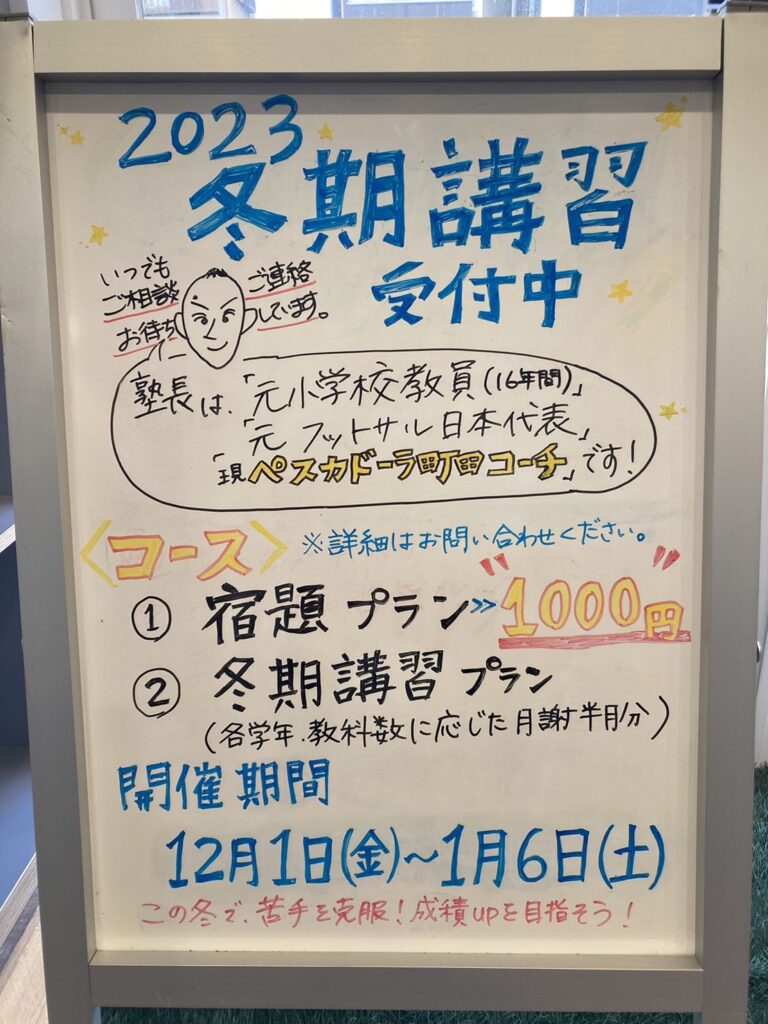 2023
冬期講習
受付中
いつでも
ご相談
お待ち
ご連絡
しています。
塾長は、「元小学校教員(16年間)」
「元 フットサル日本代表」
「現ペスカドーラ町田コーチ」です!
〈コース〉 ※詳細はお問い合わせください。
① 宿題プラン》"1000円"
② 冬期講習プラン
(各学年.教科数に応じた月謝半月分)
開催期間
12月1日(金)~1月6日(土)
この冬で、苦手を克服!成績upを目指そう!